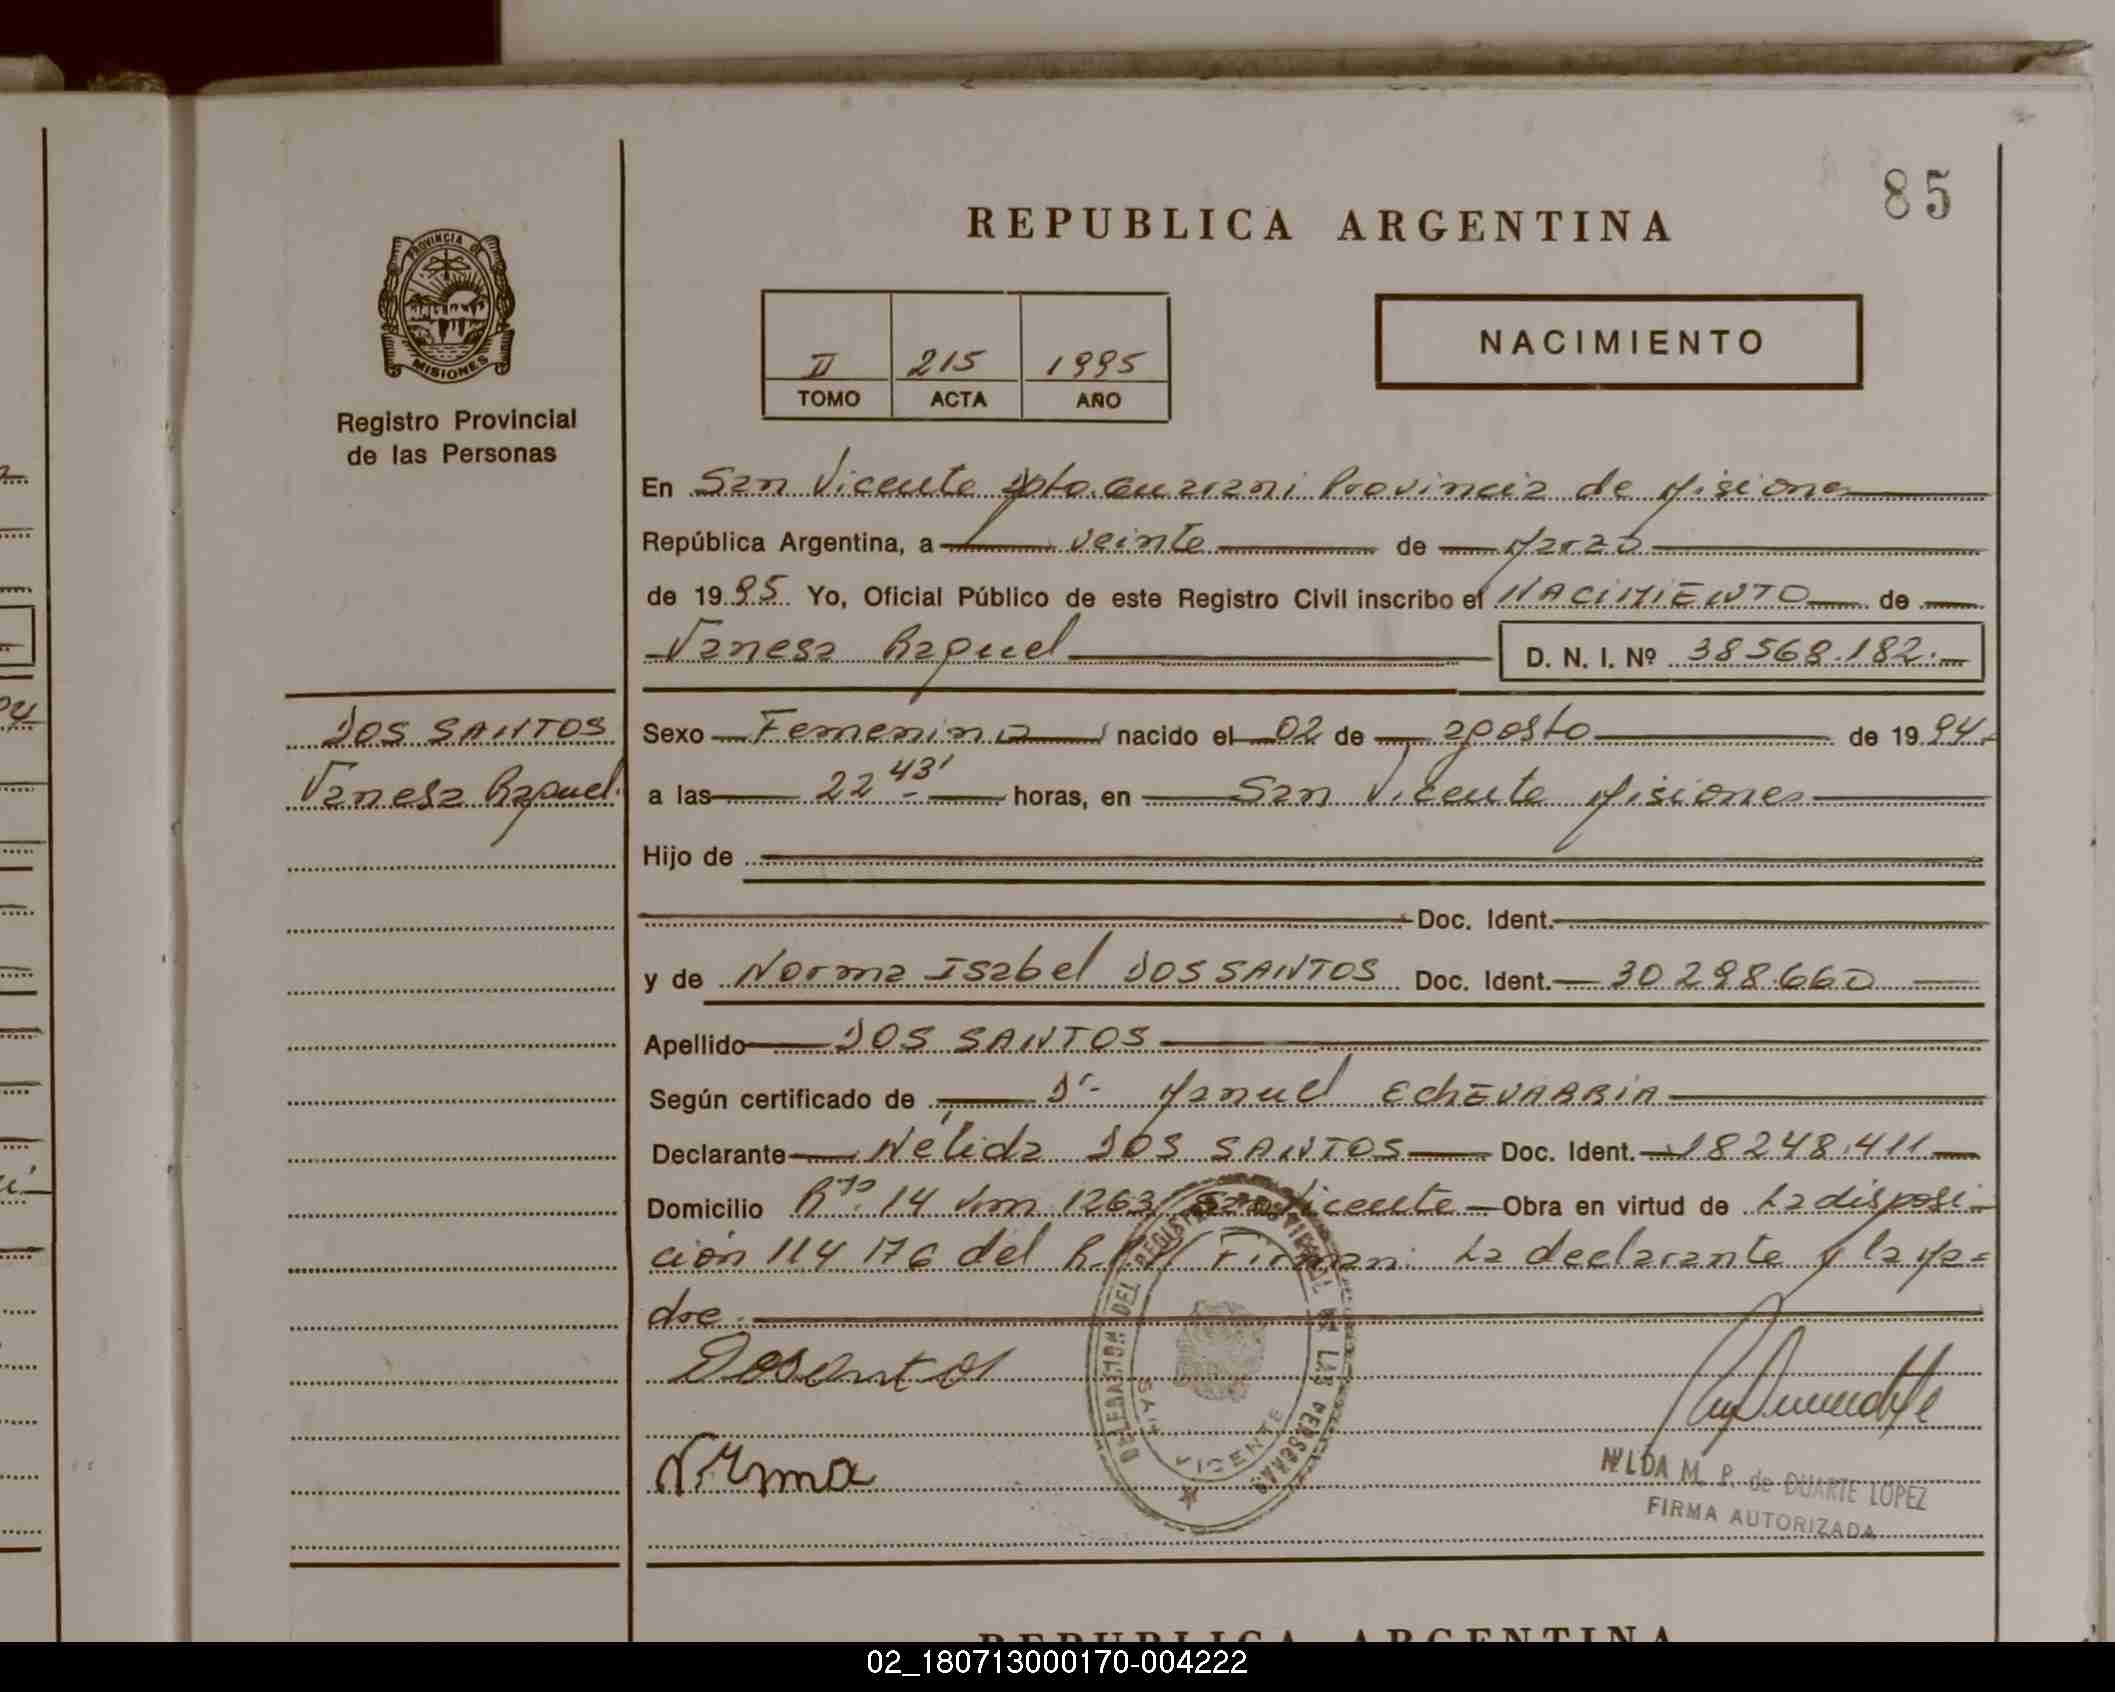 85
REPUBLICA ARGENTINA
PROVINCIA DE
MISIONES
Registro Provincial
de las Personas
II 215 1995
TOMO ACTA AÑO
NACIMIENTO
En San Vicente Dpto Guarani Provincia de Misiones
República Argentina, a veinte de Marzo
de 1995 Yo, Oficial Público de este Registro Civil inscribo el NACIMIENTO de
Vanesa Raquel D. N. I. Nº 38568.182.
DOS SANTOS
Vanesa Raquel
Sexo Femenino nacido el 02 de agosto de 1994
a las 22 43' horas, en San Vicente Misiones
Hijo de
Doc. Ident.
y de Norma Isabel DOS SANTOS Doc. Ident. 30298.660
Apellido DOS SANTOS
Según certificado de Dr Manuel EchEVARRIA
Declarante Nélida DOS SANTOS Doc. Ident. 18248.411
Domicilio Rta. 14 Km 1263 San Vicente Obra en virtud de La disposi-
ción 114 176 del Firman: La declarante y la ma=
dre.
Dosantos
Norma
DELEGACION DEL REGISTRO PROVINCIAL DE LAS PERSONAS
SAN VICENTE
NILDA M. P. de DUARTE LOPEZ
FIRMA AUTORIZADA
REPUBLICA ARGENTINA
02_180713000170-004222